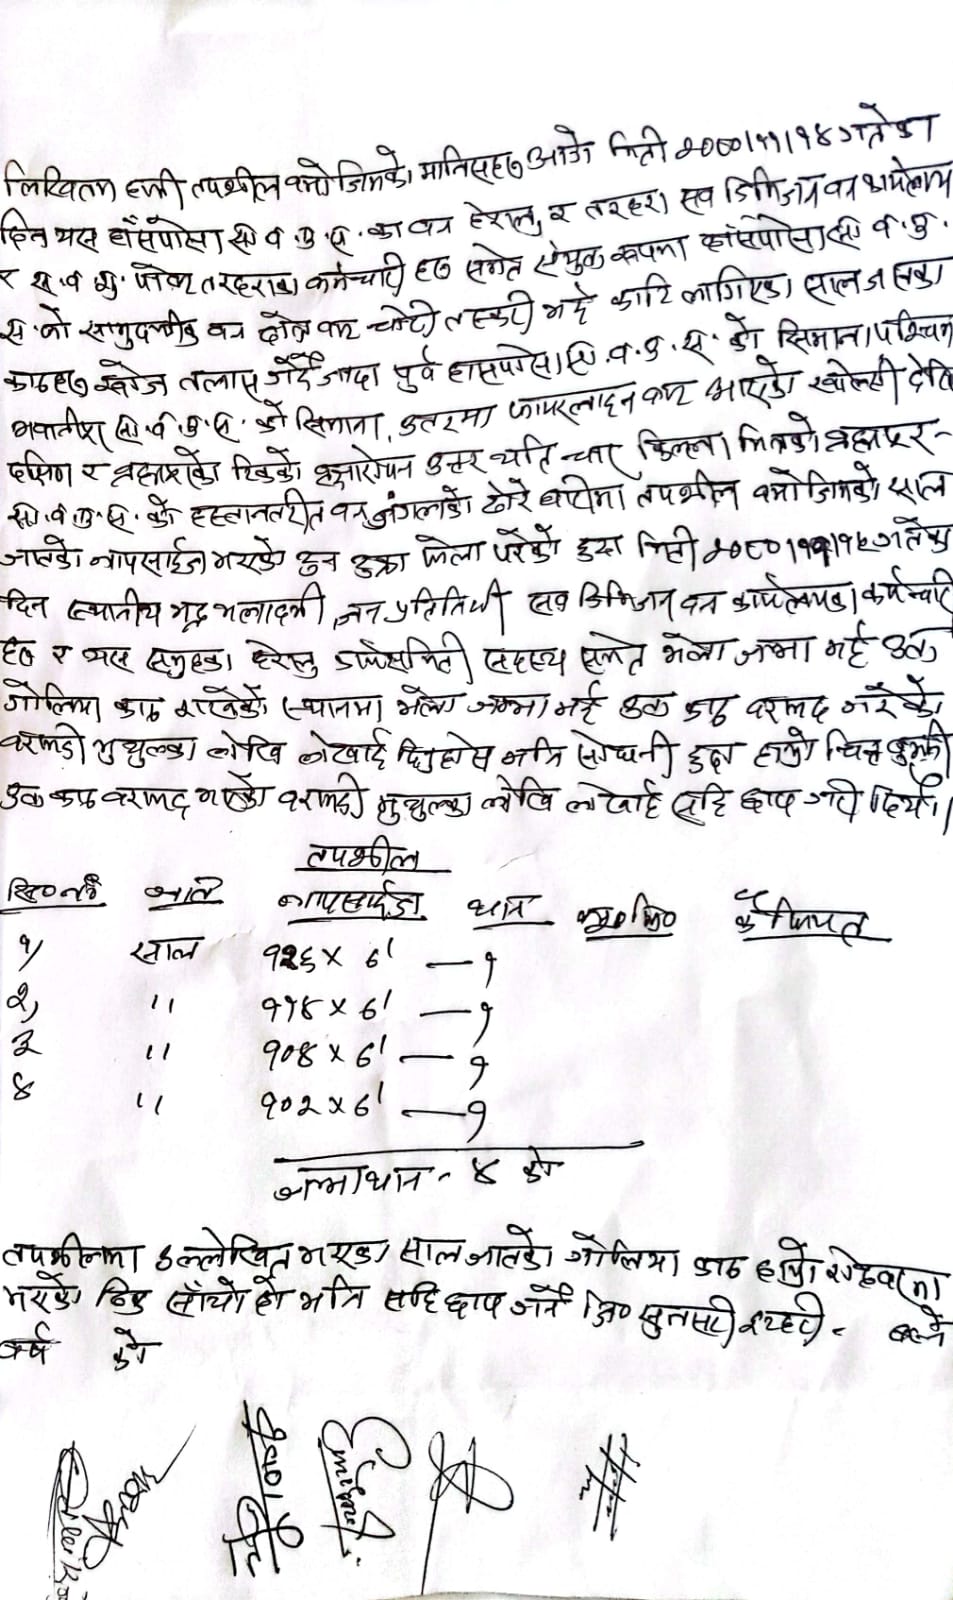 लिखितम हामी तपशील बमोजिमको मानिसहरु आगे मिती २०८०।११।१४ गतेका
दिन यस हाँसपोसा सा.व.उ.स. का वन हेरालु र तरहरा सव डिभिजन वन कार्यालय
र सा.व.उ. पोष्ट तरहराका कर्मचारी हरु समेत संयुक्त रूपमा हाँसपोसा सा.व.उ.
स. को सामुदायीक वन क्षेत्र बाट चोरी तस्करी भई काटि लागिएका साल जातका
काठहरु खोज तलास गर्दै जादा पुर्व हासपोसा सा.व.उ.स. को सिमाना पश्चिम
सा.व.उ.स. को सिमाना, उत्तरमा फायरलाईन बाट आएको खोल्सी देखि
दक्षिण र को वृक्षारोपन उत्तर यति चार किल्ला भित्रको
सा.व.उ.स. को हस्तान्तरीत वन जंगलको तपशील बमोजिमको साल
जातको नापसाईज भएको फेला परेको हुदा मिती २०८०।११।१५ गतेका
दिन स्थानीय भद्र भलादमी, जन प्रतिनिधी सव डिभिजन वन कार्यालयका कर्मचारी
हरु र यस समुहका हेरालु कार्यसमिती सदस्य समेत भेला जम्मा भई उक्त
गोलिया काठ राखेको स्थानमा भेला जम्मा भई उक्त काठ बरामद गरेको
बरामदी मुचुल्का लेखि लेखाई दिनुहोस भनि सोधनी हुदा हाम्रो चित्त बुझ्यो
उक्त काठ बरामद भएको बरामदी मुचुल्का लेखि लेखाई सहि छाप गरी दियौं।
तपशील
सि०नं जात नापसाईज थान क्यू०फि० कैफियत
१) साल १२६ x ६' — १
२) '' ११४ x ६' — १
३ '' १०४ x ६' — १
४ '' १०२ x ६' — १
जम्मा थान - ४ को
तपशीलमा उल्लेखित भएका साल जातको गोलिया काठ हाम्रो रोहवरमा
भएको ठिक साँचो हो भनि सहि छाप गर्ने जि० सुनसरी इटहरी - बस्ने
वर्ष को